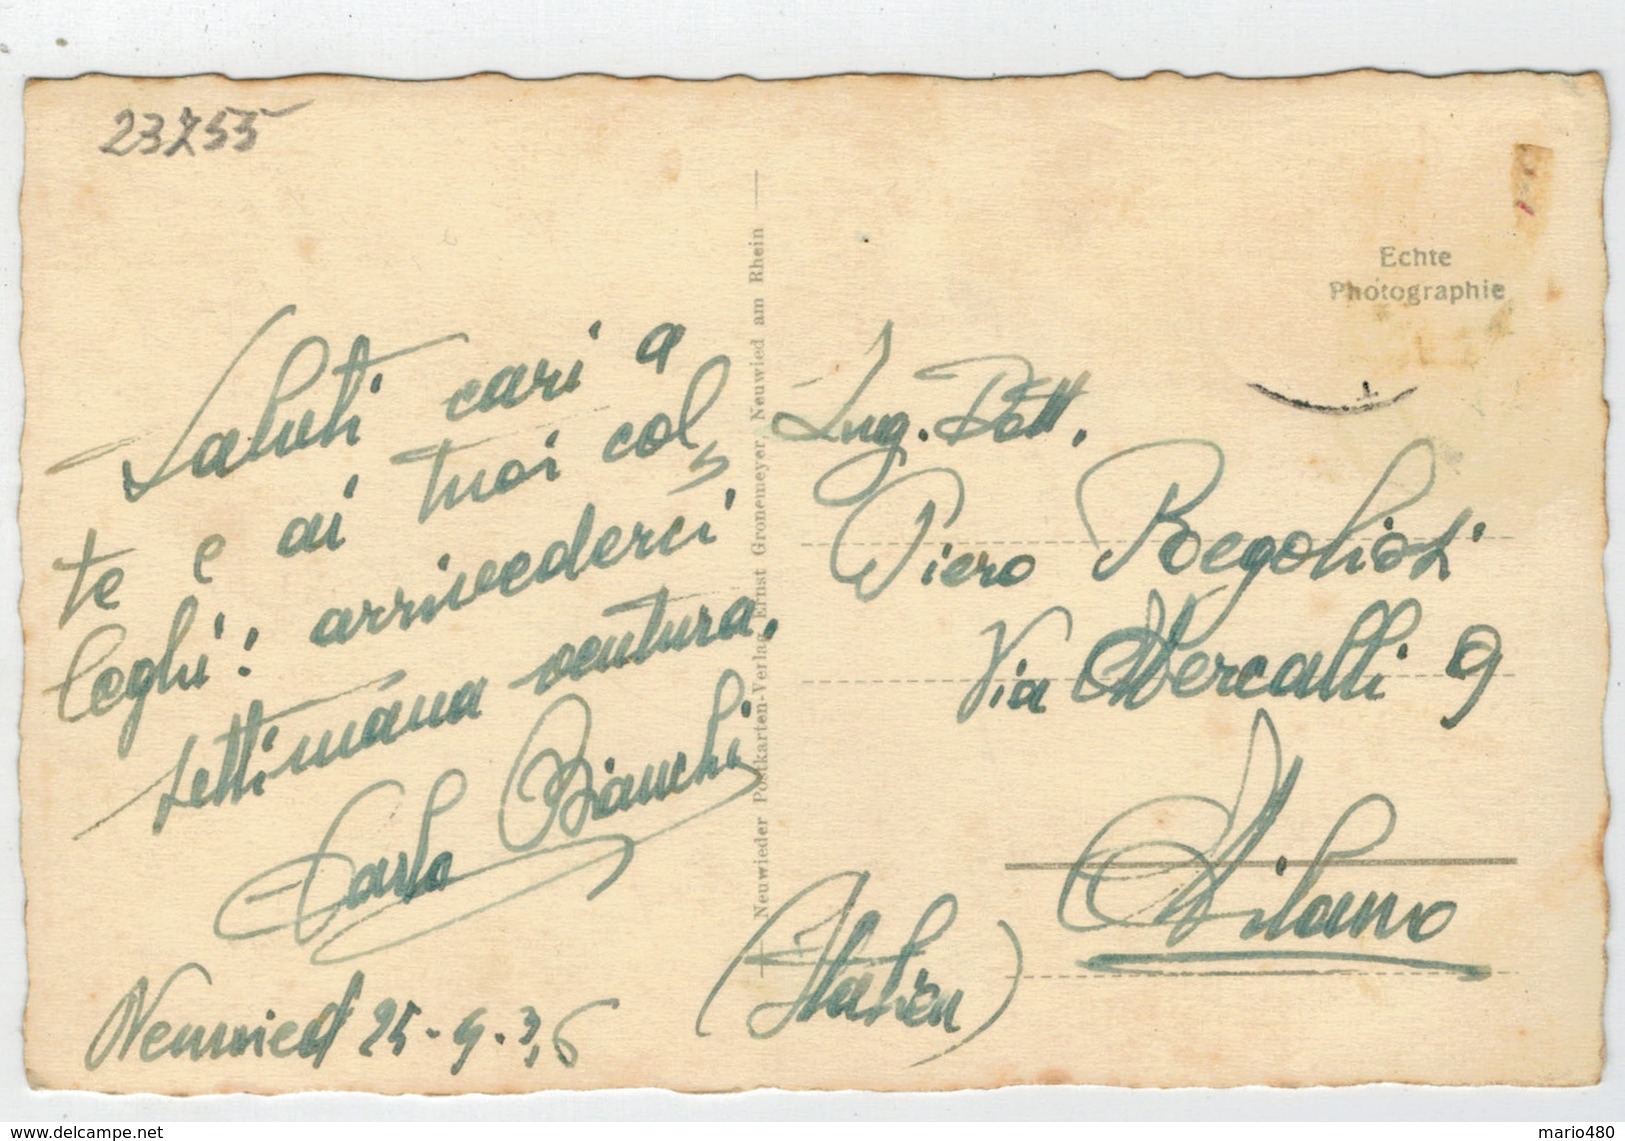 23255
Saluti cari a
te e ai tuoi col,
leghi: arrivederci
settimana ventura.
Carlo Bianchi
Neuwied 25-9-36
Neuwieder Postkarten-Verlag Ernst Gronemeyer, Neuwied am Rhein
Echte
Photographie
Ing. Dott.
Piero Regoliosi
Via Mercalli 9
Milano
(Italien)
www.delcampe.net
mario480